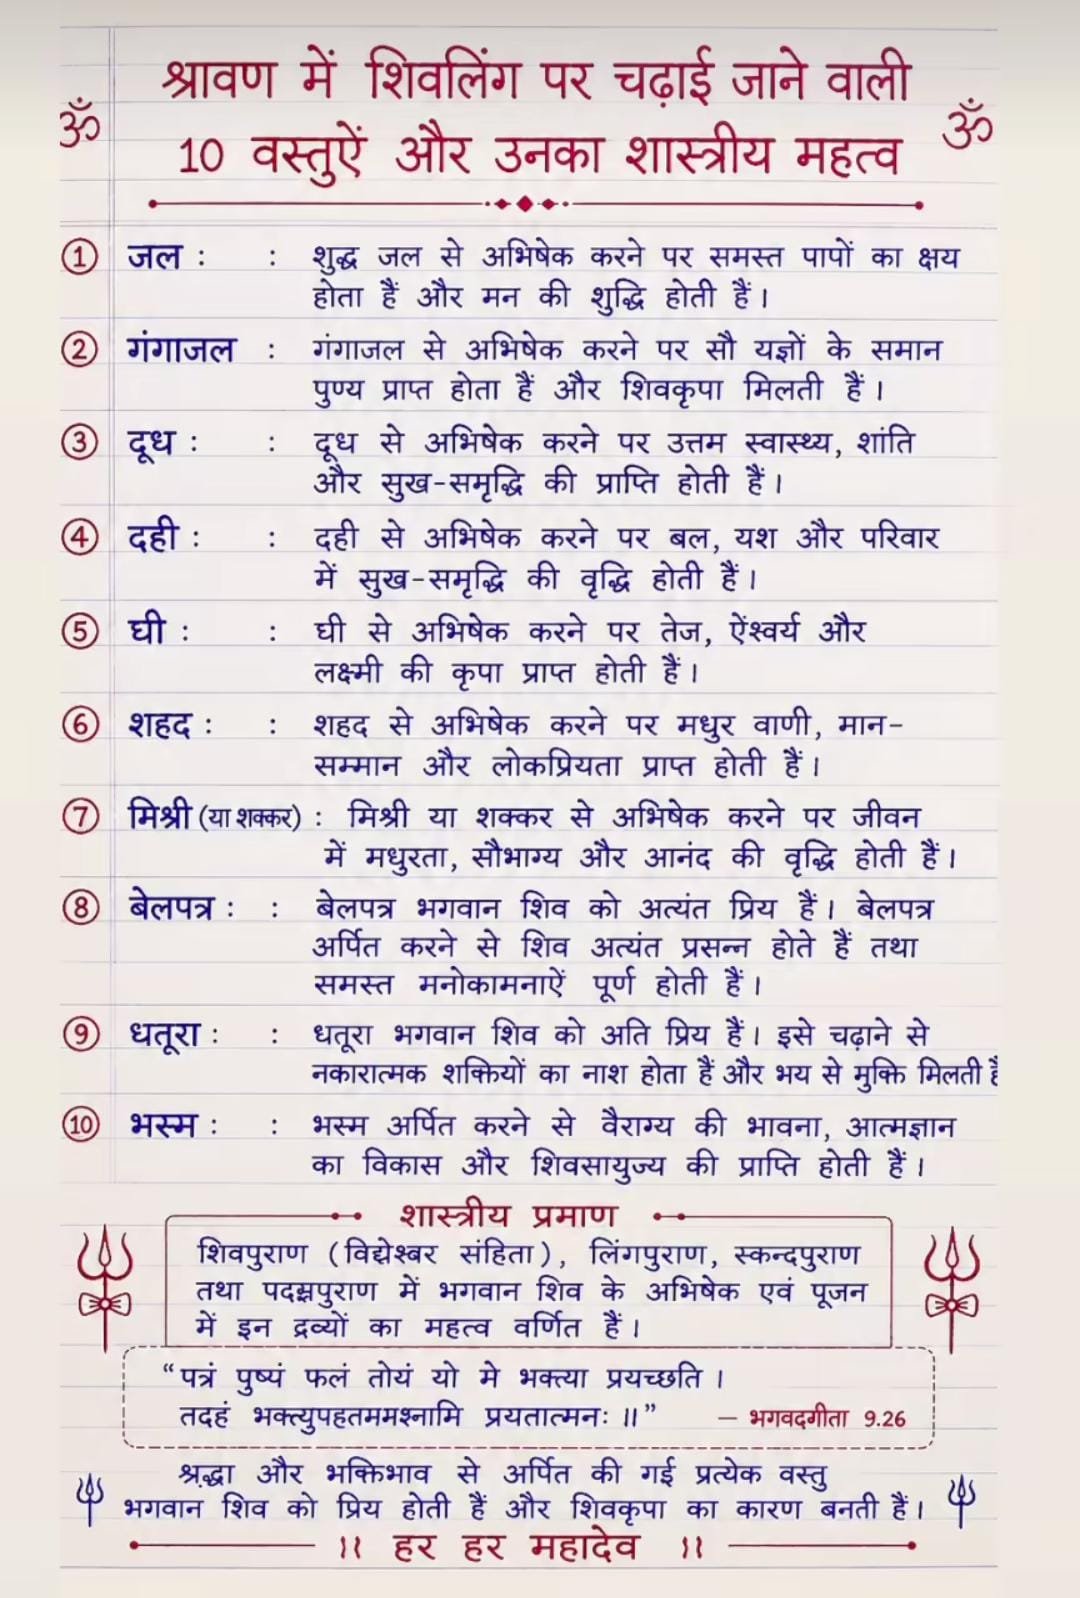 श्रावण में शिवलिंग पर चढ़ाई जाने वाली
ॐ ॐ
10 वस्तुऐं और उनका शास्त्रीय महत्व
① जल : : शुद्ध जल से अभिषेक करने पर समस्त पापों का क्षय
होता हैं और मन की शुद्धि होती हैं।
② गंगाजल : गंगाजल से अभिषेक करने पर सौ यज्ञों के समान
पुण्य प्राप्त होता हैं और शिवकृपा मिलती हैं।
③ दूध : : दूध से अभिषेक करने पर उत्तम स्वास्थ्य, शांति
और सुख-समृद्धि की प्राप्ति होती हैं।
④ दही : : दही से अभिषेक करने पर बल, यश और परिवार
में सुख-समृद्धि की वृद्धि होती हैं।
⑤ घी : : घी से अभिषेक करने पर तेज, ऐंश्वर्य और
लक्ष्मी की कृपा प्राप्त होती हैं।
⑥ शहद : : शहद से अभिषेक करने पर मधुर वाणी, मान-
सम्मान और लोकप्रियता प्राप्त होती हैं।
⑦ मिश्री (या शक्कर) : मिश्री या शक्कर से अभिषेक करने पर जीवन
में मधुरता, सौभाग्य और आनंद की वृद्धि होती हैं।
⑧ बेलपत्र : : बेलपत्र भगवान शिव को अत्यंत प्रिय हैं। बेलपत्र
अर्पित करने से शिव अत्यंत प्रसन्न होते हैं तथा
समस्त मनोकामनाऐं पूर्ण होती हैं।
⑨ धतूरा : : धतूरा भगवान शिव को अति प्रिय हैं। इसे चढ़ाने से
नकारात्मक शक्तियों का नाश होता हैं और भय से मुक्ति मिलती हैं
⑩ भस्म : : भस्म अर्पित करने से वैराग्य की भावना, आत्मज्ञान
का विकास और शिवसायुज्य की प्राप्ति होती हैं।
शास्त्रीय प्रमाण
शिवपुराण (विद्येश्बर संहिता), लिंगपुराण, स्कन्दपुराण
तथा में भगवान शिव के अभिषेक एवं पूजन
में इन द्रव्यों का महत्व वर्णित हैं।
“पत्रं पुष्यं फलं तोयं यो मे भक्त्या प्रयच्छति।
तदहं भक्त्युपहतममश्नामि प्रयतात्मनः॥” – भगवदगीता 9.26
श्रद्धा और भक्तिभाव से अर्पित की गई प्रत्येक वस्तु
भगवान शिव को प्रिय होती हैं और शिवकृपा का कारण बनती हैं।
॥ हर हर महादेव ॥